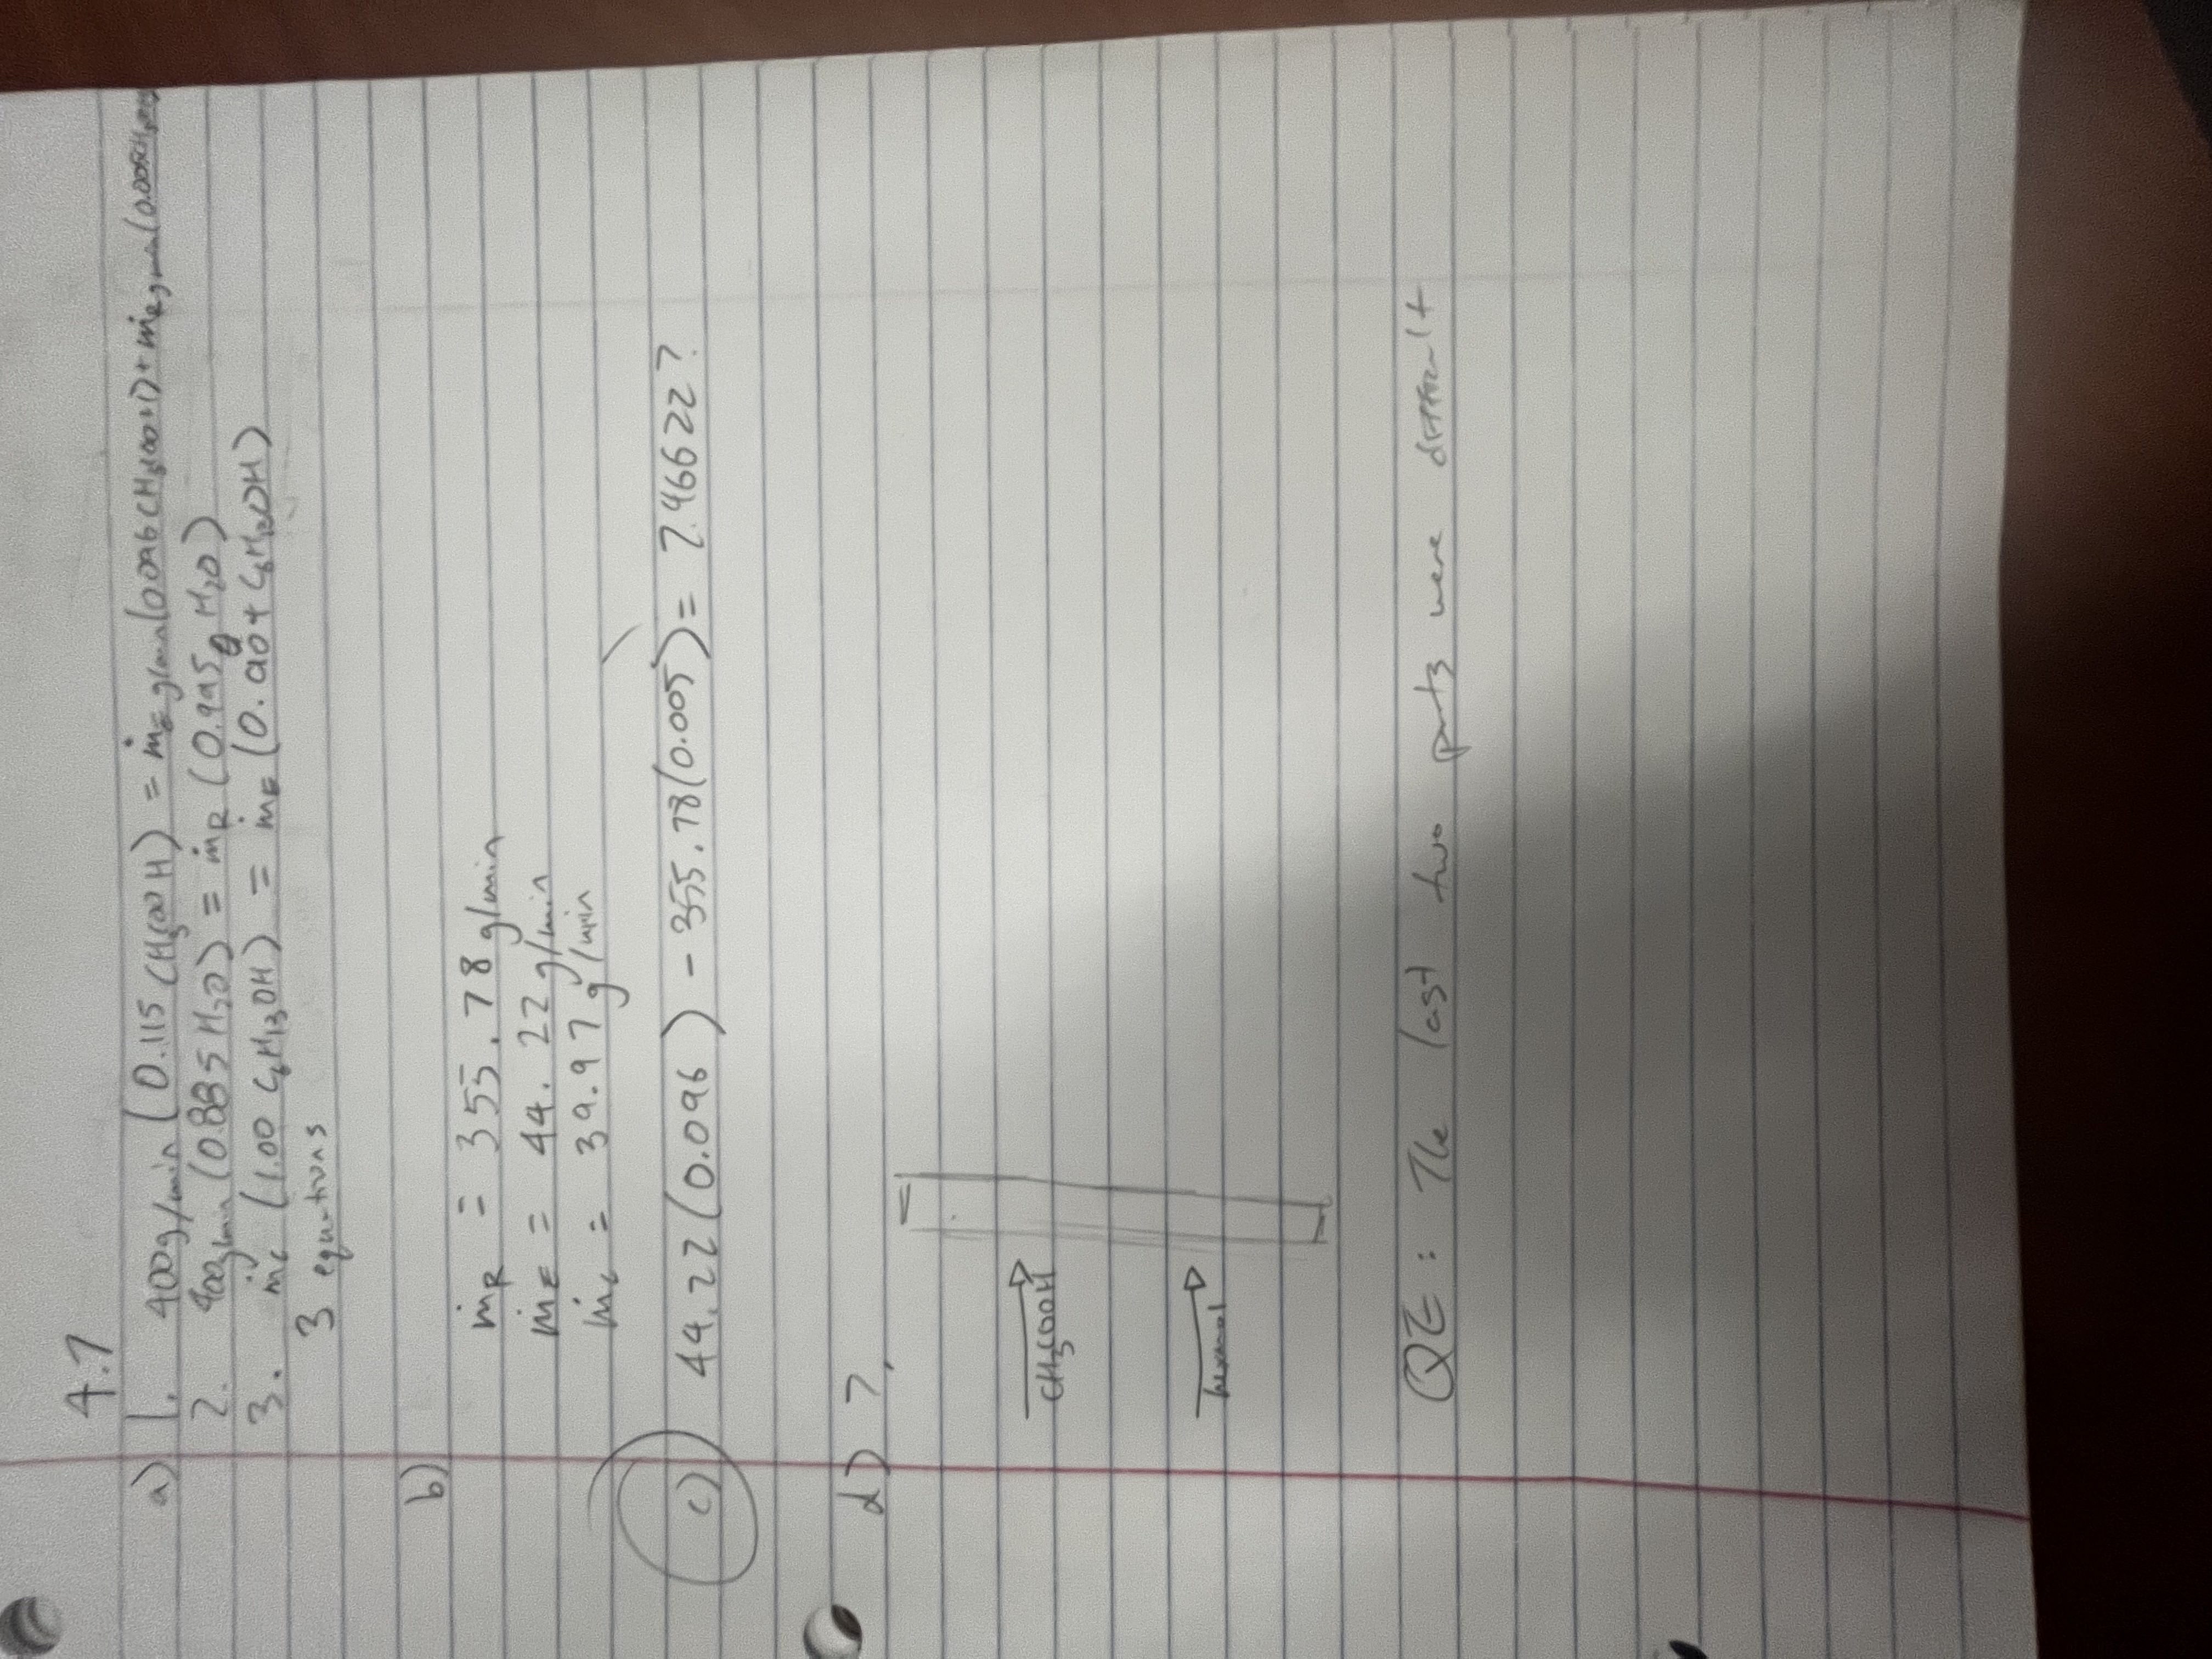 4.7
a) 1. 400g/min (0.115 CH3COOH) = ṁE g/min(0.096 CH3COOH) + ṁR g/min (0.005
2. 400g/min (0.885 H2O) = ṁR (0.995 g H2O)
3. ṁc (1.00 C6H13OH) = ṁE (0.904 C6H13OH)
3 equations
b)
ṁR = 355.78 g/min
ṁE = 44.22 g/min
ṁc = 39.97 g/min
c) 44.22 (0.096) - 355.78(0.005) = 2.46622?
d) ?
CH3COOH
hexanol
QE: The last two parts were difficult